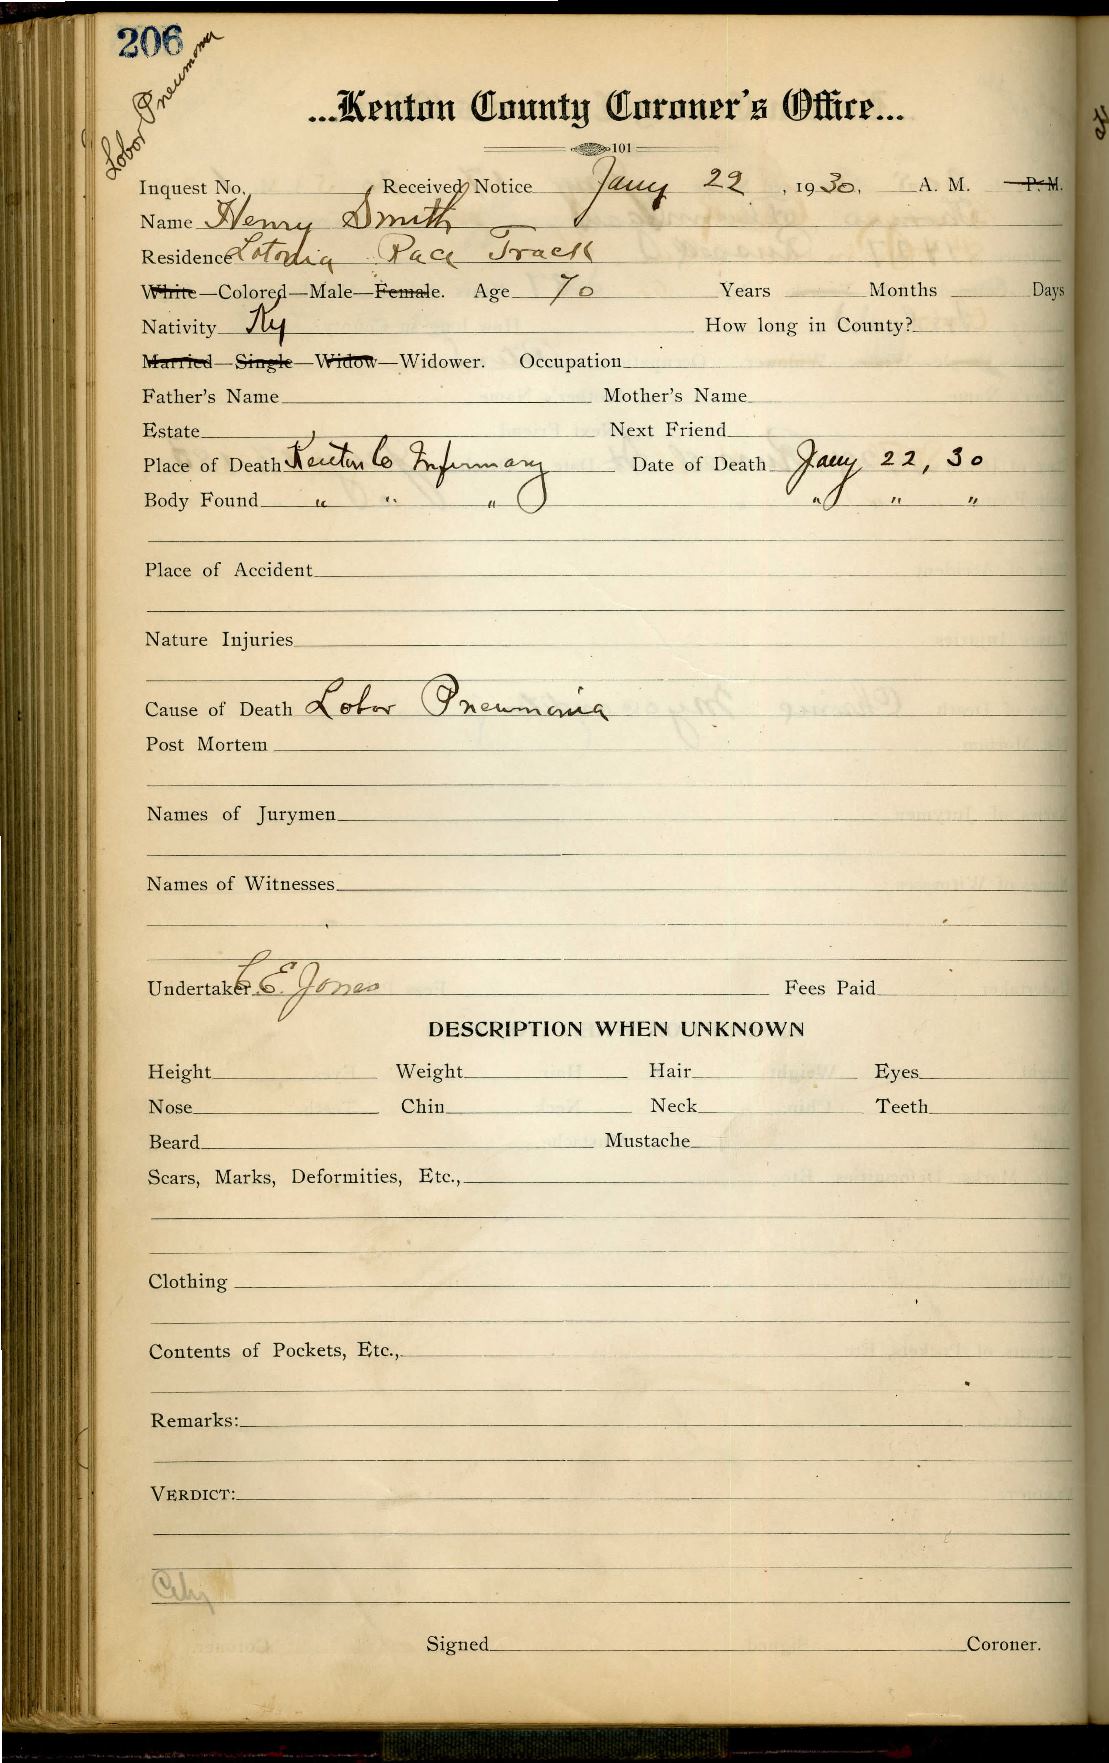 206
Lobor Pneumonia
...Kenton County Coroner's Office...
101
Inquest No. Received Notice Jany 22, 1930, A. M. P. M.
Name Henry Smith
Residence Latonia Race Track
White—Colored—Male—Female. Age 70 Years Months Days
Nativity Ky How long in County?
Married—Single—Widow—Widower. Occupation
Father's Name Mother's Name
Estate Next Friend
Place of Death Kenton Co Infirmary Date of Death Jany 22, 30
Body Found " " " " " "
Place of Accident
Nature Injuries
Cause of Death Lobor Pneumonia
Post Mortem
Names of Jurymen
Names of Witnesses
Undertaker C. E. Jones Fees Paid
DESCRIPTION WHEN UNKNOWN
Height Weight Hair Eyes
Nose Chin Neck Teeth
Beard Mustache
Scars, Marks, Deformities, Etc.,
Clothing
Contents of Pockets, Etc.,
Remarks:
VERDICT:
City
Signed Coroner.